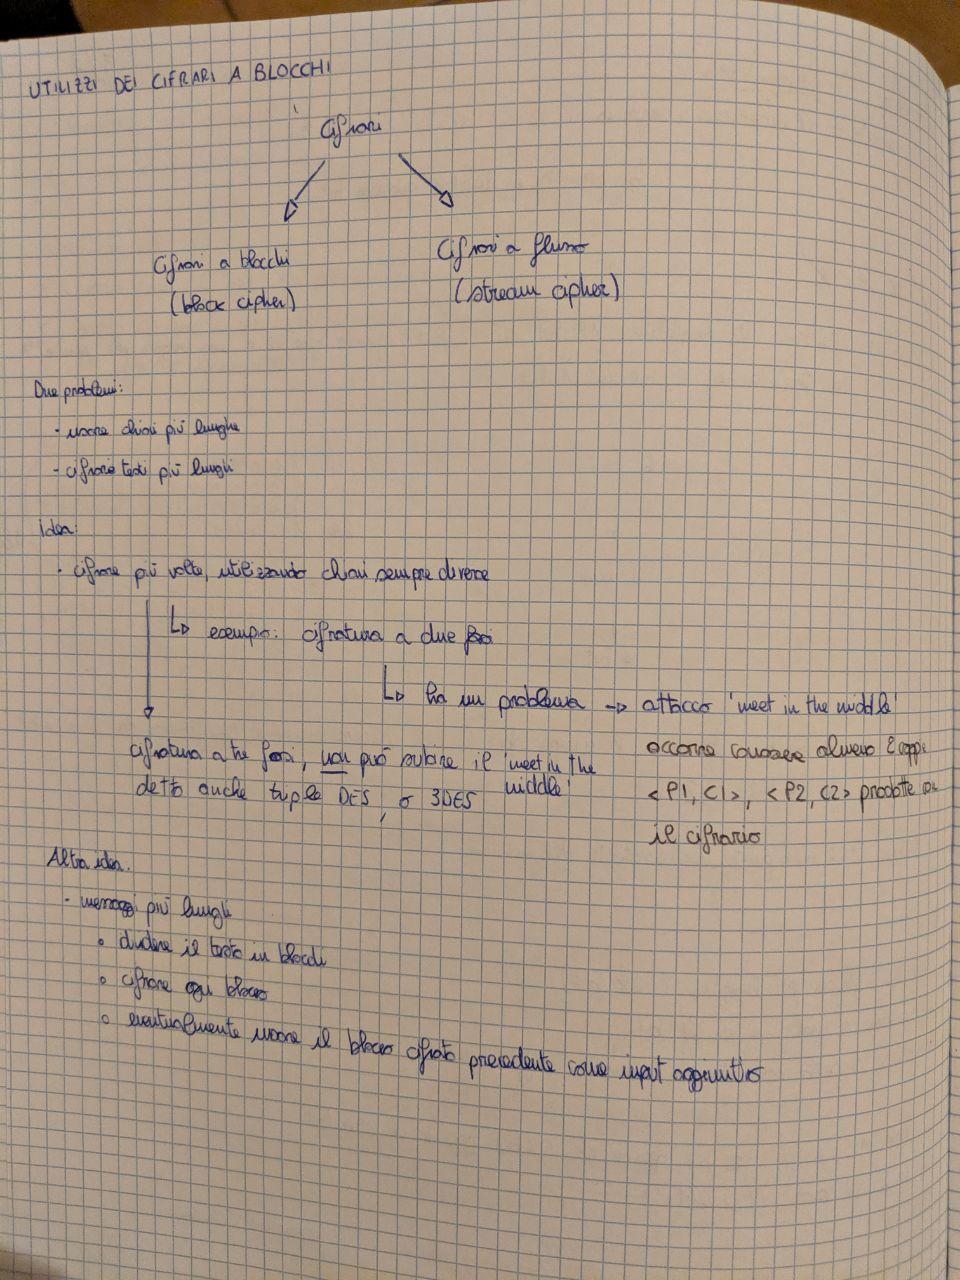 UTILIZZI DEI CIFRARI A BLOCCHI
Cifrari
Cifrari a blocchi
(block cipher)
Cifrari a flusso
(stream cipher)
Due problemi:
- usare chiavi più lunghe
- cifrare testi più lunghi
Idea:
- cifrare più volte, utilizzando chiavi sempre diverse
esempio: cifratura a due fasi
ha un problema → attacco 'meet in the middle'
occorre conoscere almeno 2 coppie
<P1, C1>, <P2, C2> prodotte
il cifrario
cifratura a tre fasi, non può subire il 'meet in the
middle'
detto anche triple DES, o 3DES
Altra idea.
- messaggi più lunghi
o dividere il testo in blocchi
o cifrare ogni blocco
o eventualmente usare il blocco cifrato precedente come input aggiuntivo